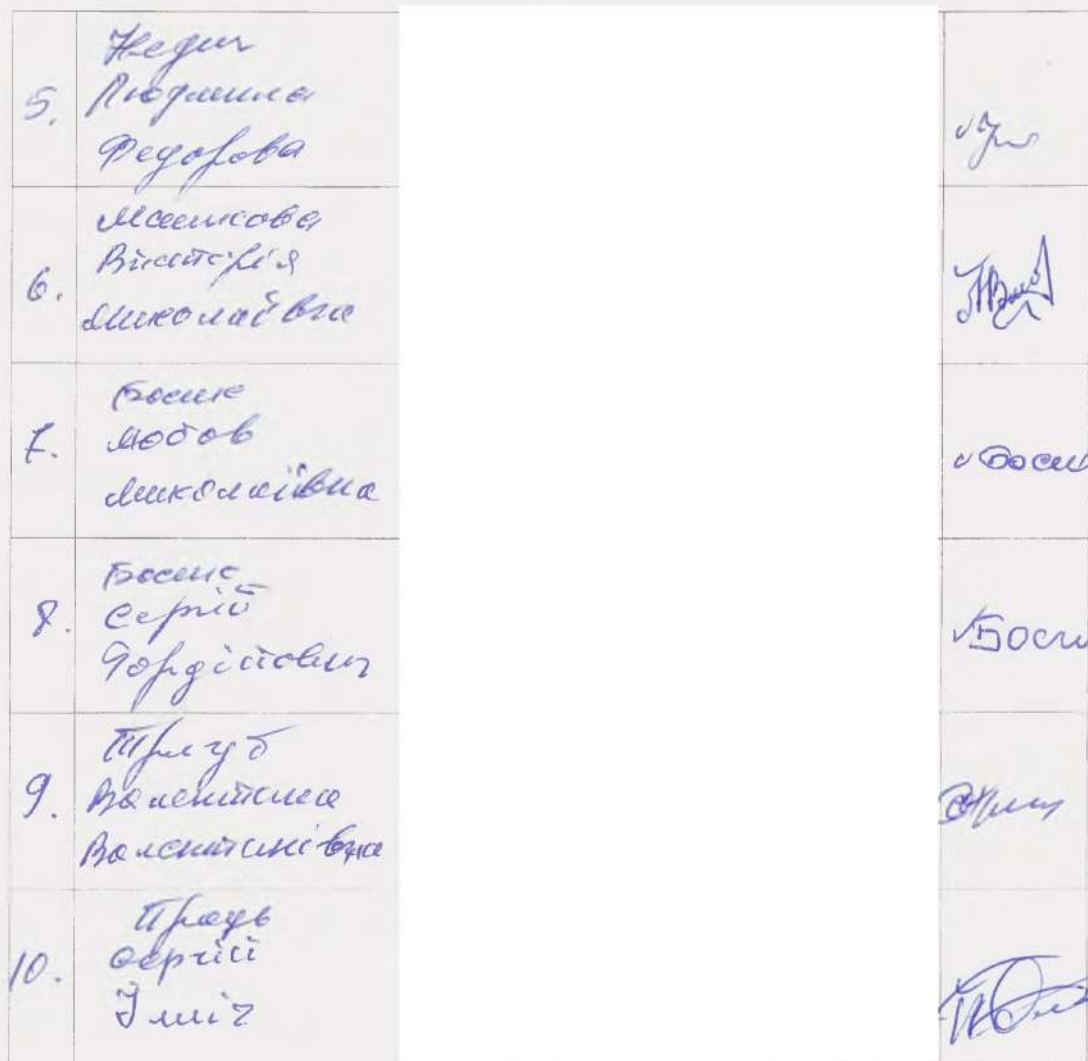 5.
Людмила
Федорова
6.
Вікторія
Миколаївна
7.
Босик
Любов
Миколаївна
Босик
8.
Босик
Сергій
Гордійович
Босик
9.
Тригуб
Валентина
Валентинівна
10.
Сергій
Ілліч